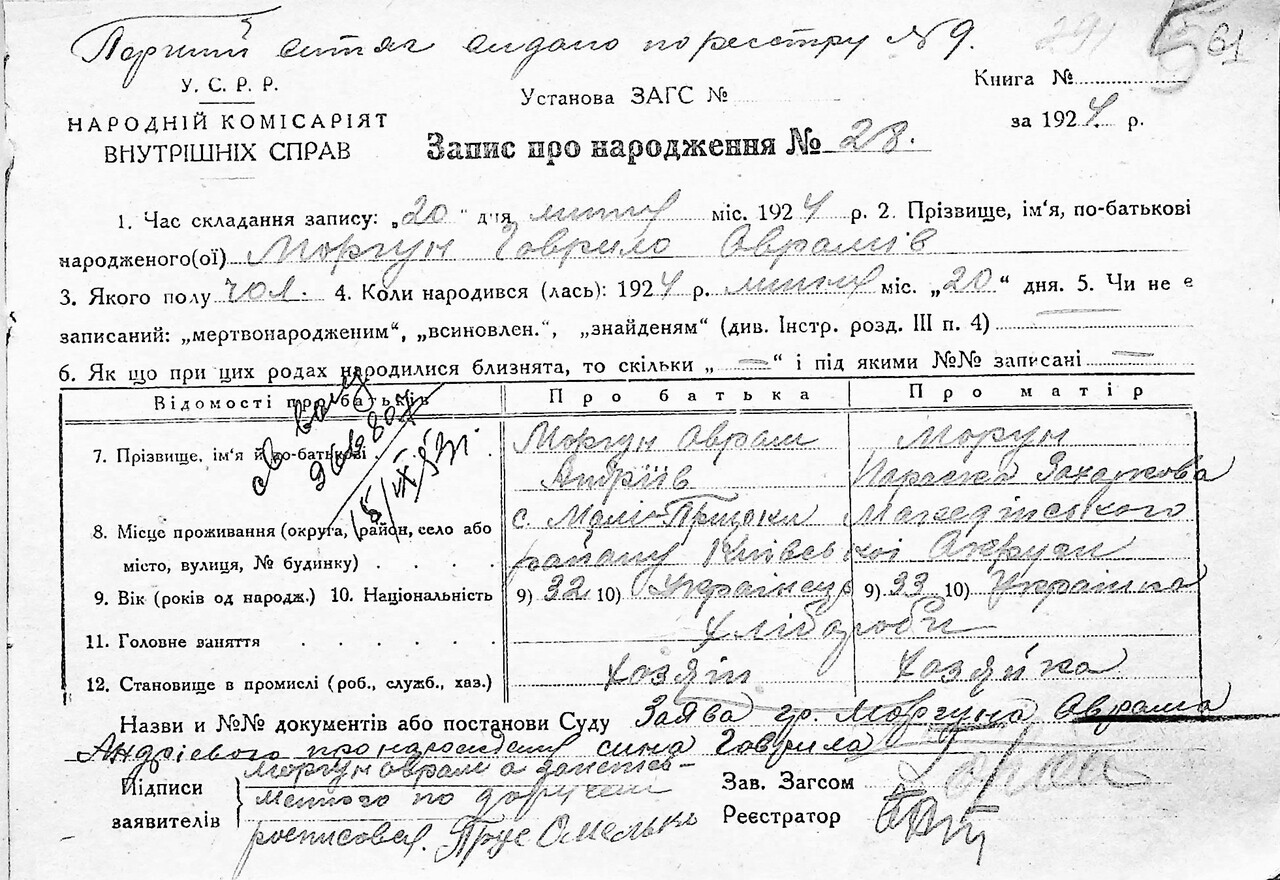 Перший витяг видано по реестру № 9.
291 5 61
У. С. Р. Р.
НАРОДНІЙ КОМІСАРІЯТ
ВНУТРІШНІХ СПРАВ
Установа ЗАГС №
Книга №
за 1924 р.
Запис про народження № 28.
1. Час складання запису: „20" дня лютня міс. 1924 р. 2. Прізвище, ім'я, по-батькові
народженого(ої) Моргун Говрило Оврамів
3. Якого полу чол. 4. Коли народився (лась): 1924 р. лютня міс. „20" дня. 5. Чи не є
записаний: „мертвонародженим", „всиновлен.", „знайденям" (див. Інстр. розд. III п. 4)
6. Як що при цих родах народилися близнята, то скільки „ = " і під якими №№ записані —
Відомості про батьків
Про батька
Про матір
7. Прізвище, ім'я й по-батькові
Моргун Оврам
Андріїв
Моргун
Параска Захаркова
8. Місце проживання (округа, район, село або
місто, вулиця, № будинку)
с. Малі-Прицки
району Київської Округи
9. Вік (років од народж.) 10. Національність
9) 32 10) Українець
9) 33 10) Українка
11. Головне заняття
Хлібороби
12. Становище в промислі (роб., служб., хаз.)
Хозяін
Хозяйка
Назви и №№ документів або постанови Суду Заява гр. Моргуна Оврама
Андрієвого про народження сина Говрила
Підписи
заявителів
Моргун Оврам а
по
росписовся. Прус Омелько
Зав. Загсом
Реєстратор